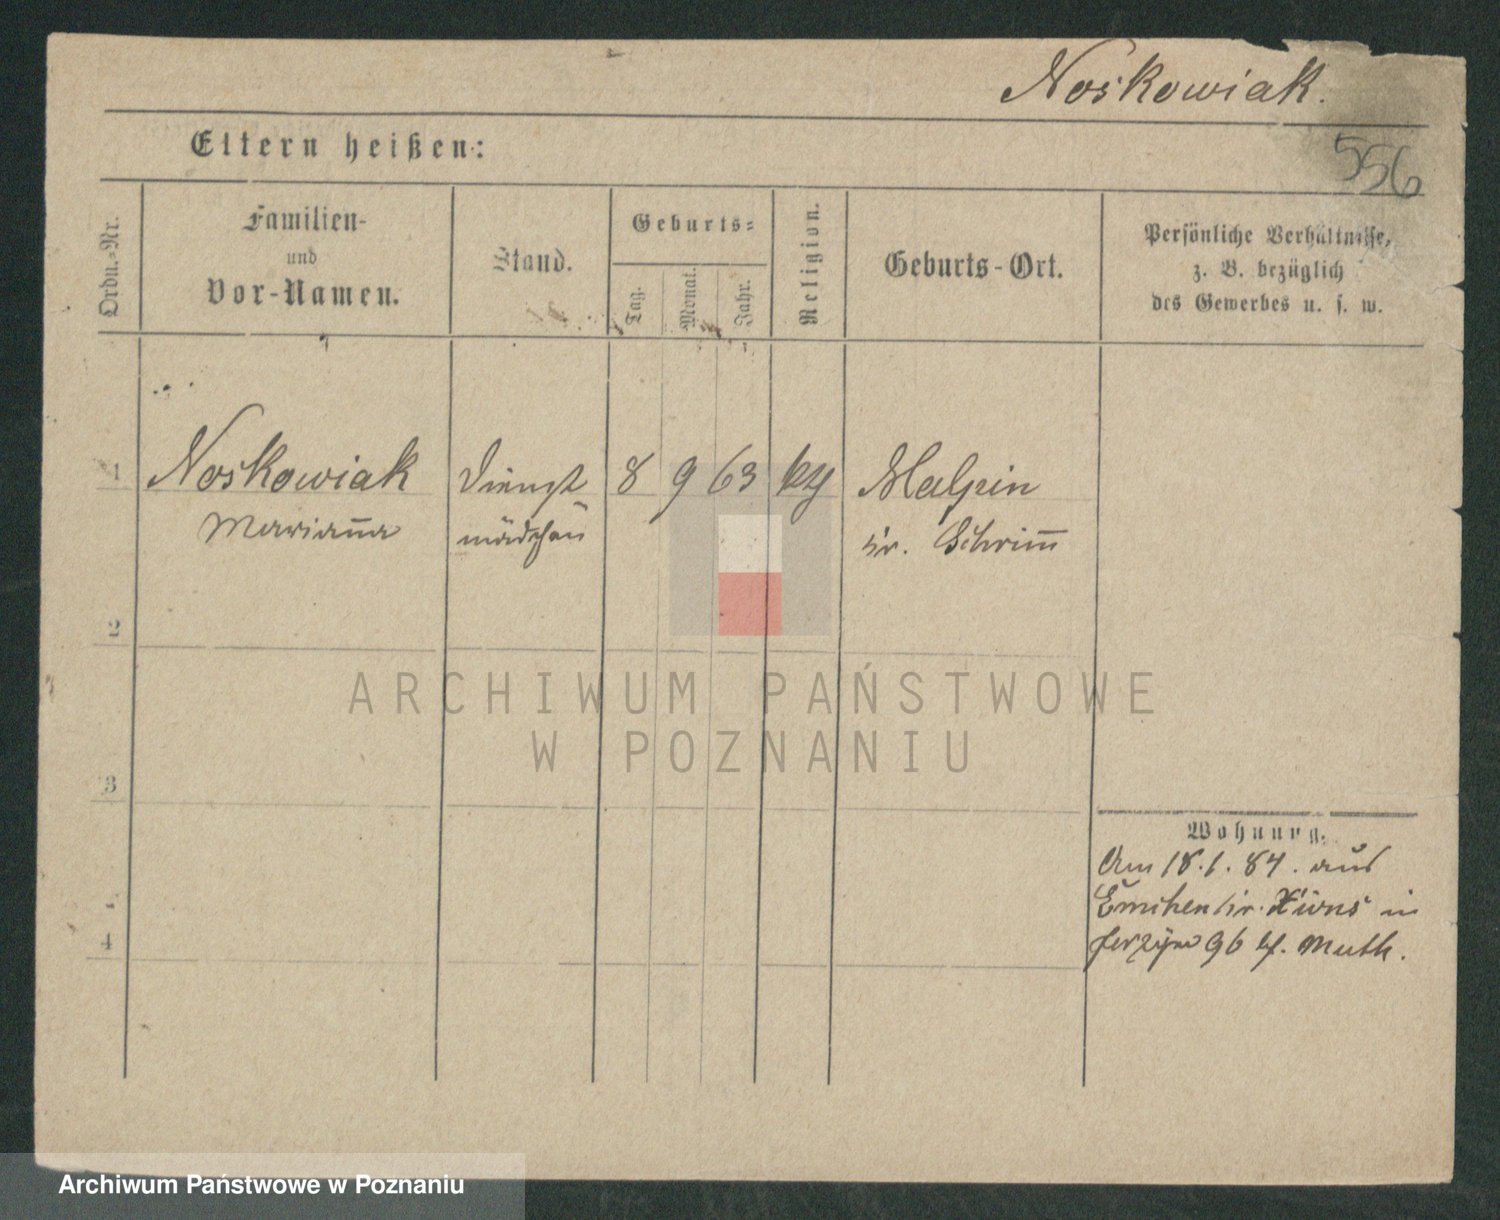 Noskowiak.
Eltern heißen:
556
Ordn.-Nr.
Familien-
und
Vor-Namen.
Stand.
Geburts-
Tag.
Monat.
Jahr.
Religion.
Geburts-Ort.
Persönliche Verhältnisse,
z. B. bezüglich
des Gewerbes u. s. w.
1
Noskowiak Dienst 8 9 63 Malpin
Marianna mädchen Kr. Schrimm
2
ARCHIWUM PAŃSTWOWE
W POZNANIU
3
Wohnung.
Am 18.1.84. aus
Kr. Xions in
Jerzyce 96 Muth.
4
Archiwum Państwowe w Poznaniu